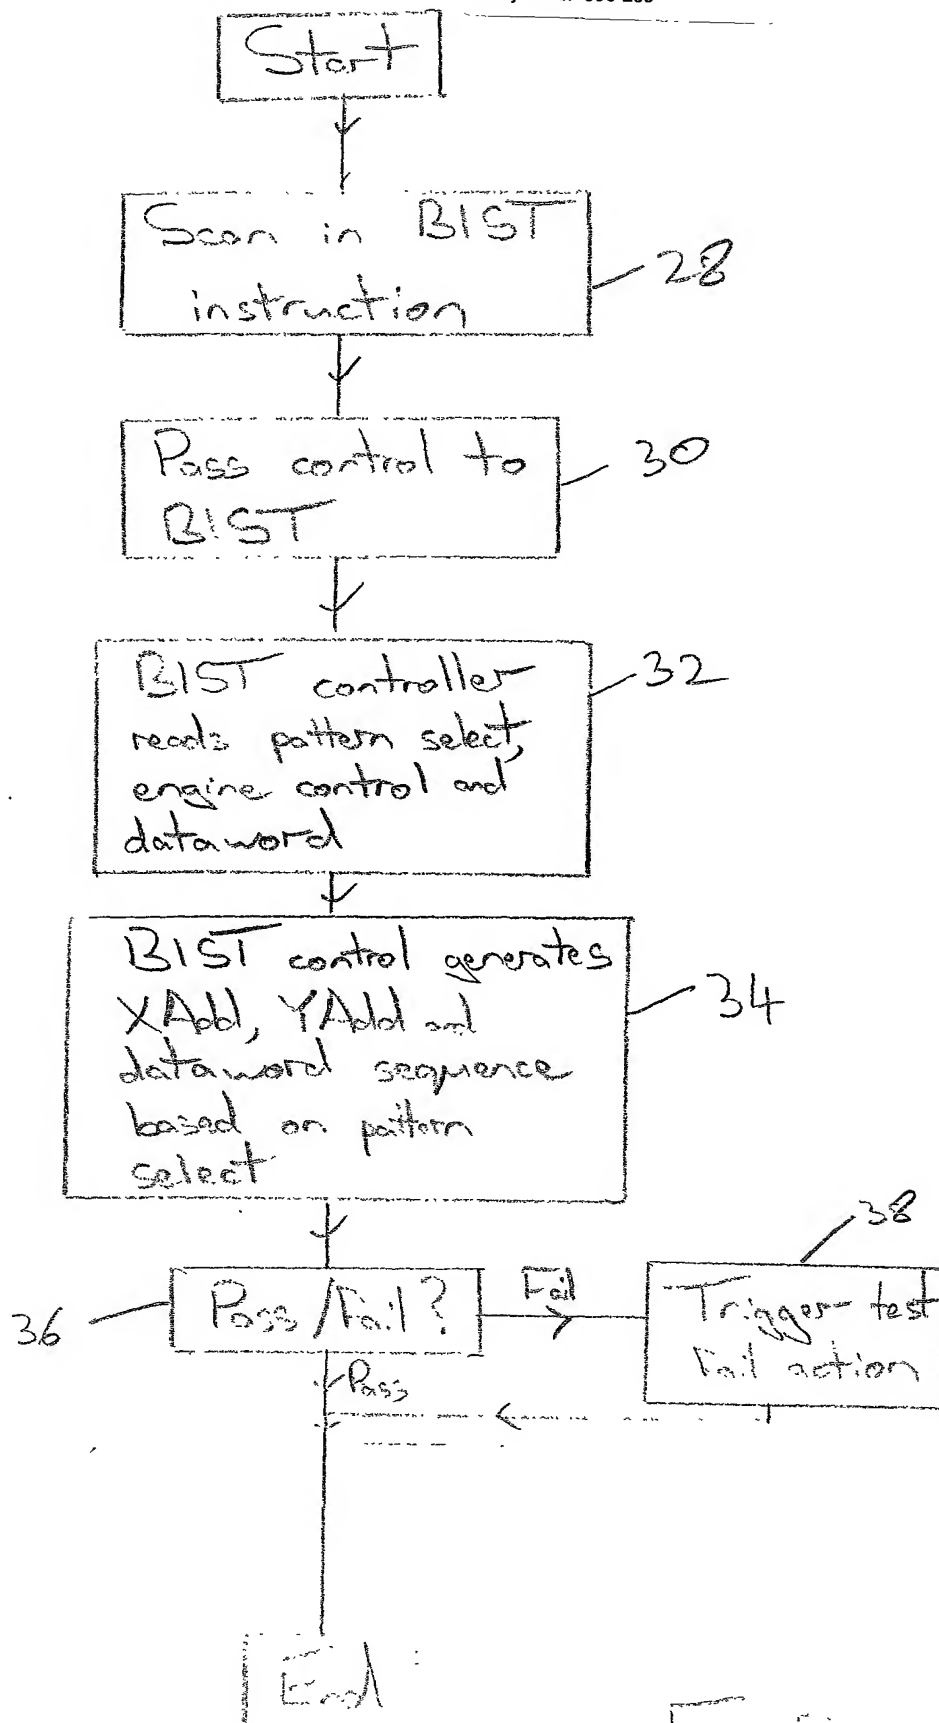 Start
Scan in BIST
instruction
28
Pass control to
BIST
30
BIST controller
reads pattern select,
engine control and
dataword
32
BIST control generates
XAdd, YAdd and
dataword sequence
based on pattern
select
34
36
Pass/Fail?
Fail
38
Trigger test
Fail action
Pass
End